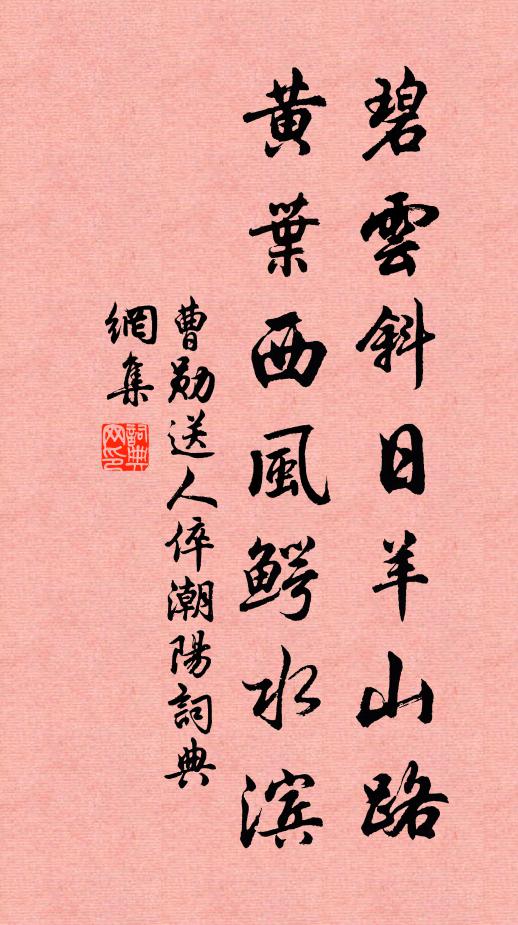 碧雲斜日羊山路
黃葉西風鳄水滨
曹勋送人倅潮陽詞典
網集
詞典
网印